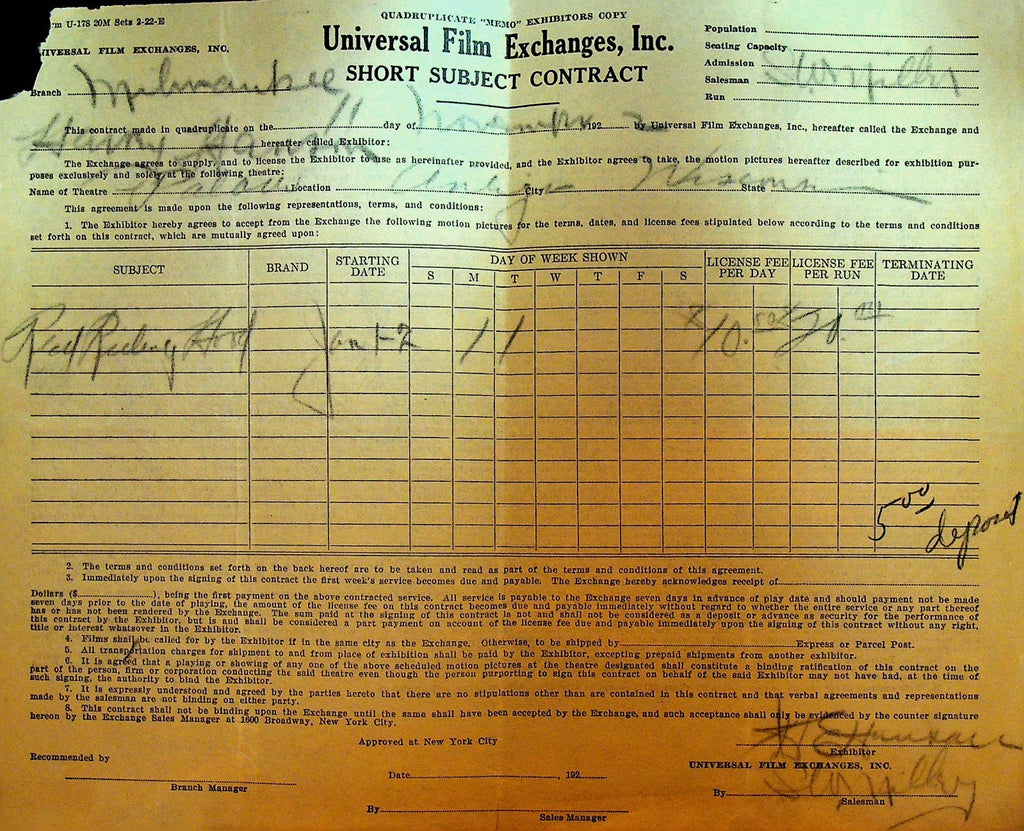 QUADRUPLICATE "MEMO" EXHIBITORS COPY
m U-178 20M Sets 2-22-E
UNIVERSAL FILM EXCHANGES, INC.
Universal Film Exchanges, Inc.
SHORT SUBJECT CONTRACT
Branch Milwaukee
Population
Seating Capacity
Admission
Salesman
Run
This contract made in quadruplicate on the 11 day of November, 192 by Universal Film Exchanges, Inc., hereafter called the Exchange and
Harry Hanson hereafter called Exhibitor:
The Exchange agrees to supply, and to license the Exhibitor to use as hereinafter provided, and the Exhibitor agrees to take, the motion pictures hereafter described for exhibition pur-
poses exclusively and solely at the following theatre:
Name of Theatre Location Antigo City Wisconsin State
This agreement is made upon the following representations, terms, and conditions:
1. The Exhibitor hereby agrees to accept from the Exchange the following motion pictures for the terms, dates, and license fees stipulated below according to the terms and conditions
set forth on this contract, which are mutually agreed upon:
SUBJECT BRAND STARTING DATE DAY OF WEEK SHOWN S M T W T F S LICENSE FEE PER DAY LICENSE FEE PER RUN TERMINATING DATE
Red Riding Hood Jan 1-2 1 1 10.00 20.00
5 00 deposit
2. The terms and conditions set forth on the back hereof are to be taken and read as part of the terms and conditions of this agreement.
3. Immediately upon the signing of this contract the first week's service becomes due and payable. The Exchange hereby acknowledges receipt of
Dollars ($ ), being the first payment on the above contracted service. All service is payable to the Exchange seven days in advance of play date and should payment not be made
seven days prior to the date of playing, the amount of the license fee on this contract becomes due and payable immediately without regard to whether the entire service or any part thereof
has or has not been rendered by the Exchange. The sum paid at the signing of this contract is not and shall not be considered as a deposit or advance as security for the performance of
this contract by the Exhibitor, but is and shall be considered a part payment on account of the license fee due and payable immediately upon the signing of this contract without any right,
title or interest whatsoever in the Exhibitor.
4. Films shall be called for by the Exhibitor if in the same city as the Exchange. Otherwise, to be shipped by Express or Parcel Post.
5. All transportation charges for shipment to and from place of exhibition shall be paid by the Exhibitor, excepting prepaid shipments from another exhibitor.
6. It is agreed that a playing or showing of any one of the above scheduled motion pictures at the theatre designated shall constitute a binding ratification of this contract on the
part of the person, firm or corporation conducting the said theatre even though the person purporting to sign this contract on behalf of the said Exhibitor may not have had, at the time of
such signing, the authority to bind the Exhibitor.
7. It is expressly understood and agreed by the parties hereto that there are no stipulations other than are contained in this contract and that verbal agreements and representations
made by the salesman are not binding on either party.
8. This contract shall not be binding upon the Exchange until the same shall have been accepted by the Exchange, and such acceptance shall only be evidenced by the counter signature
hereon by the Exchange Sales Manager at 1600 Broadway, New York City.
Approved at New York City
Recommended by
Exhibitor
UNIVERSAL FILM EXCHANGES, INC.
Date , 192
Branch Manager
By Salesman
By
Sales Manager